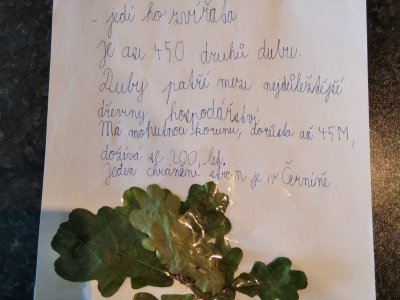 - jedí ho zvířata
Je asi 450 druhů dubu.
Duby patří mezi nejdůležitější
dřeviny hospodářství.
Má mohutnou korunu, dorůsta až 45M,
dožívá se 200 let.
Jeden chráněný strom je i v Černíně.